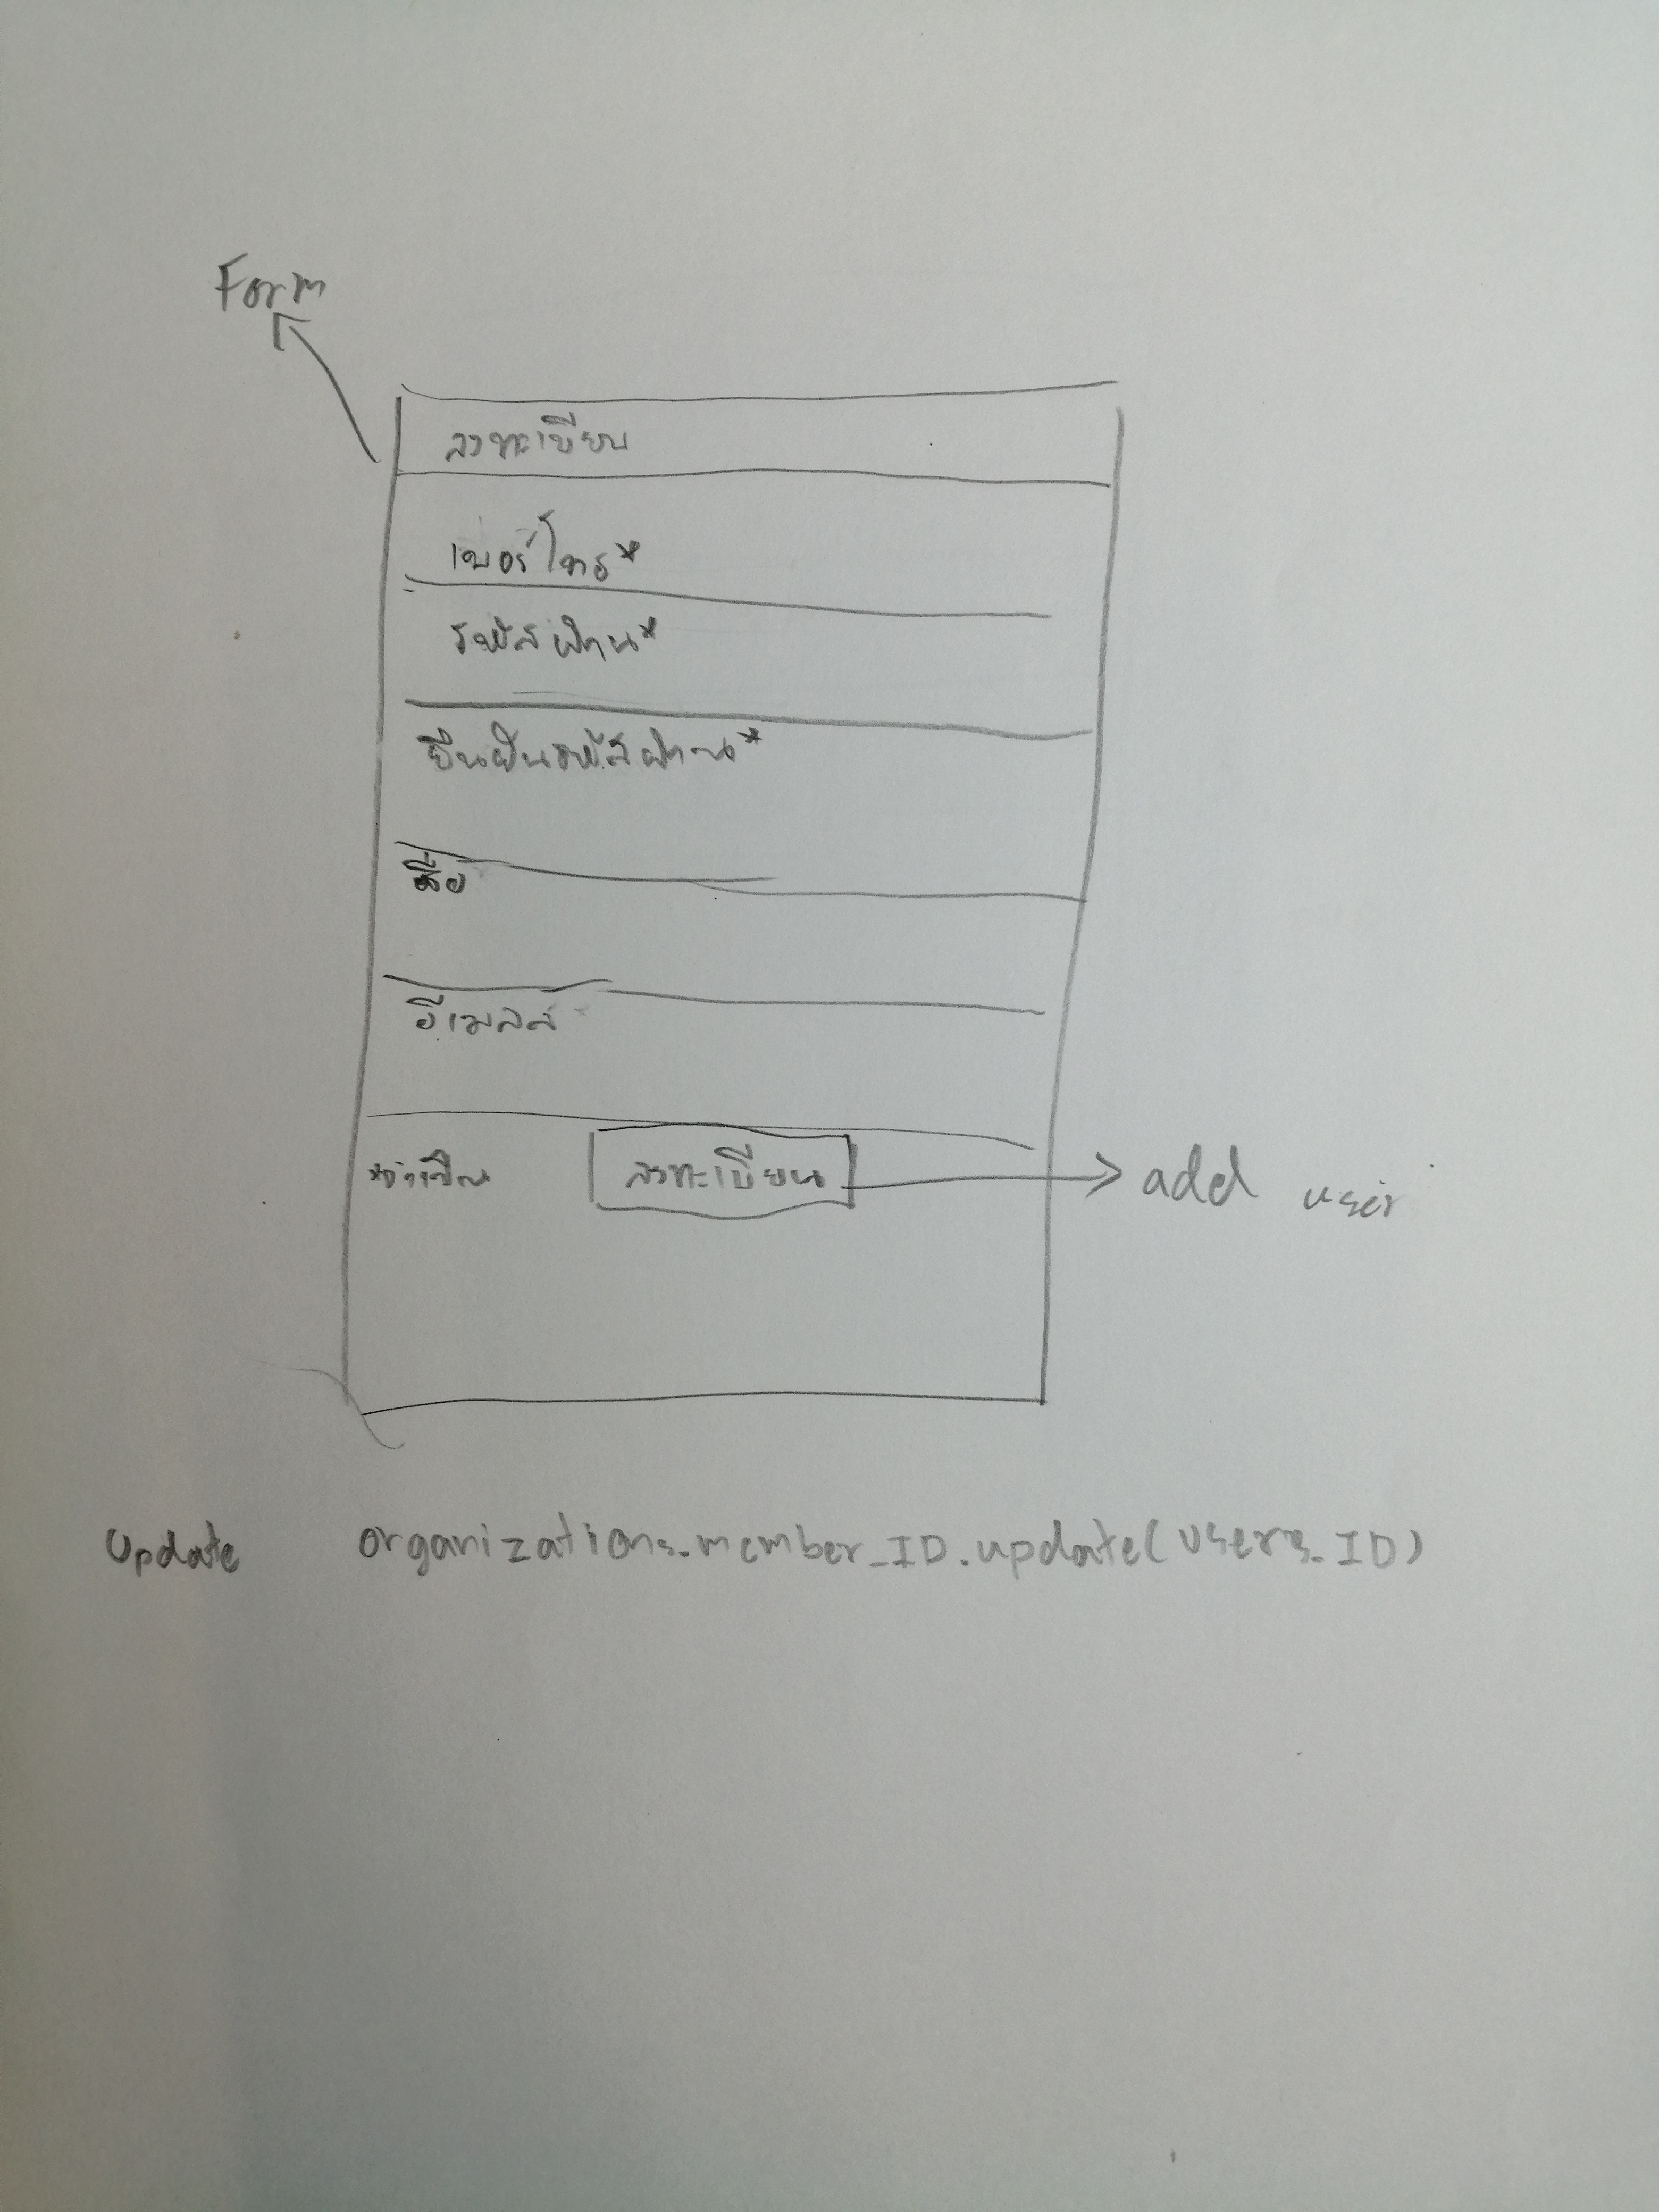 Form
ลงทะเบียน
เบอร์โทร*
รหัสผ่าน*
ยืนยันรหัสผ่าน*
ชื่อ
อีเมลล์
*จำเป็น
ลงทะเบียน
add user
Update organizations.member_ID.update(users_ID)